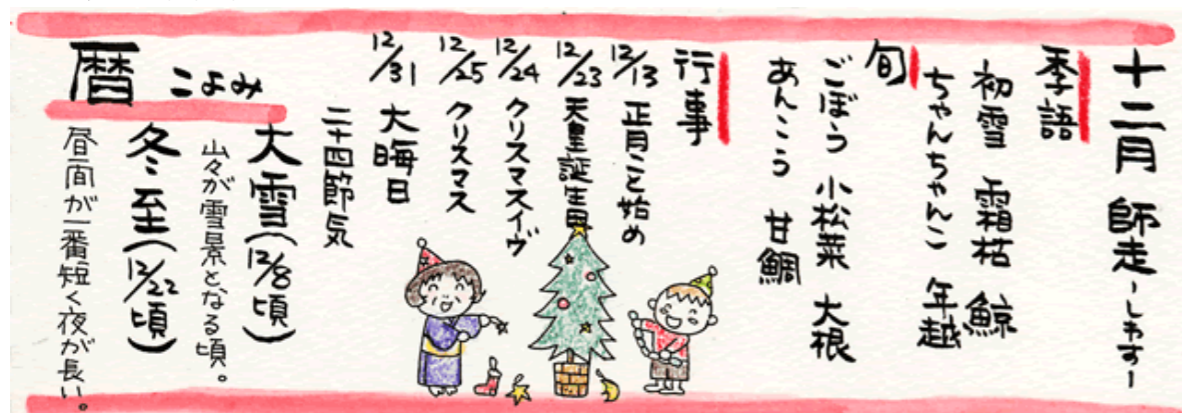 十二月 師走-しわすー
季語
初雪 霜枯 鯨
ちゃんちゃんこ 年越
旬
ごぼう 小松菜 大根
あんこう 甘鯛
行事
12/13 正月こと始め
12/23 天皇誕生日
12/24 クリスマスイヴ
12/25 クリスマス
12/31 大晦日
二十四節気
暦 こよみ
大雪(12/8頃)
山々が雪景となる頃。
冬至(12/22頃)
昼間が一番短く夜が長い。